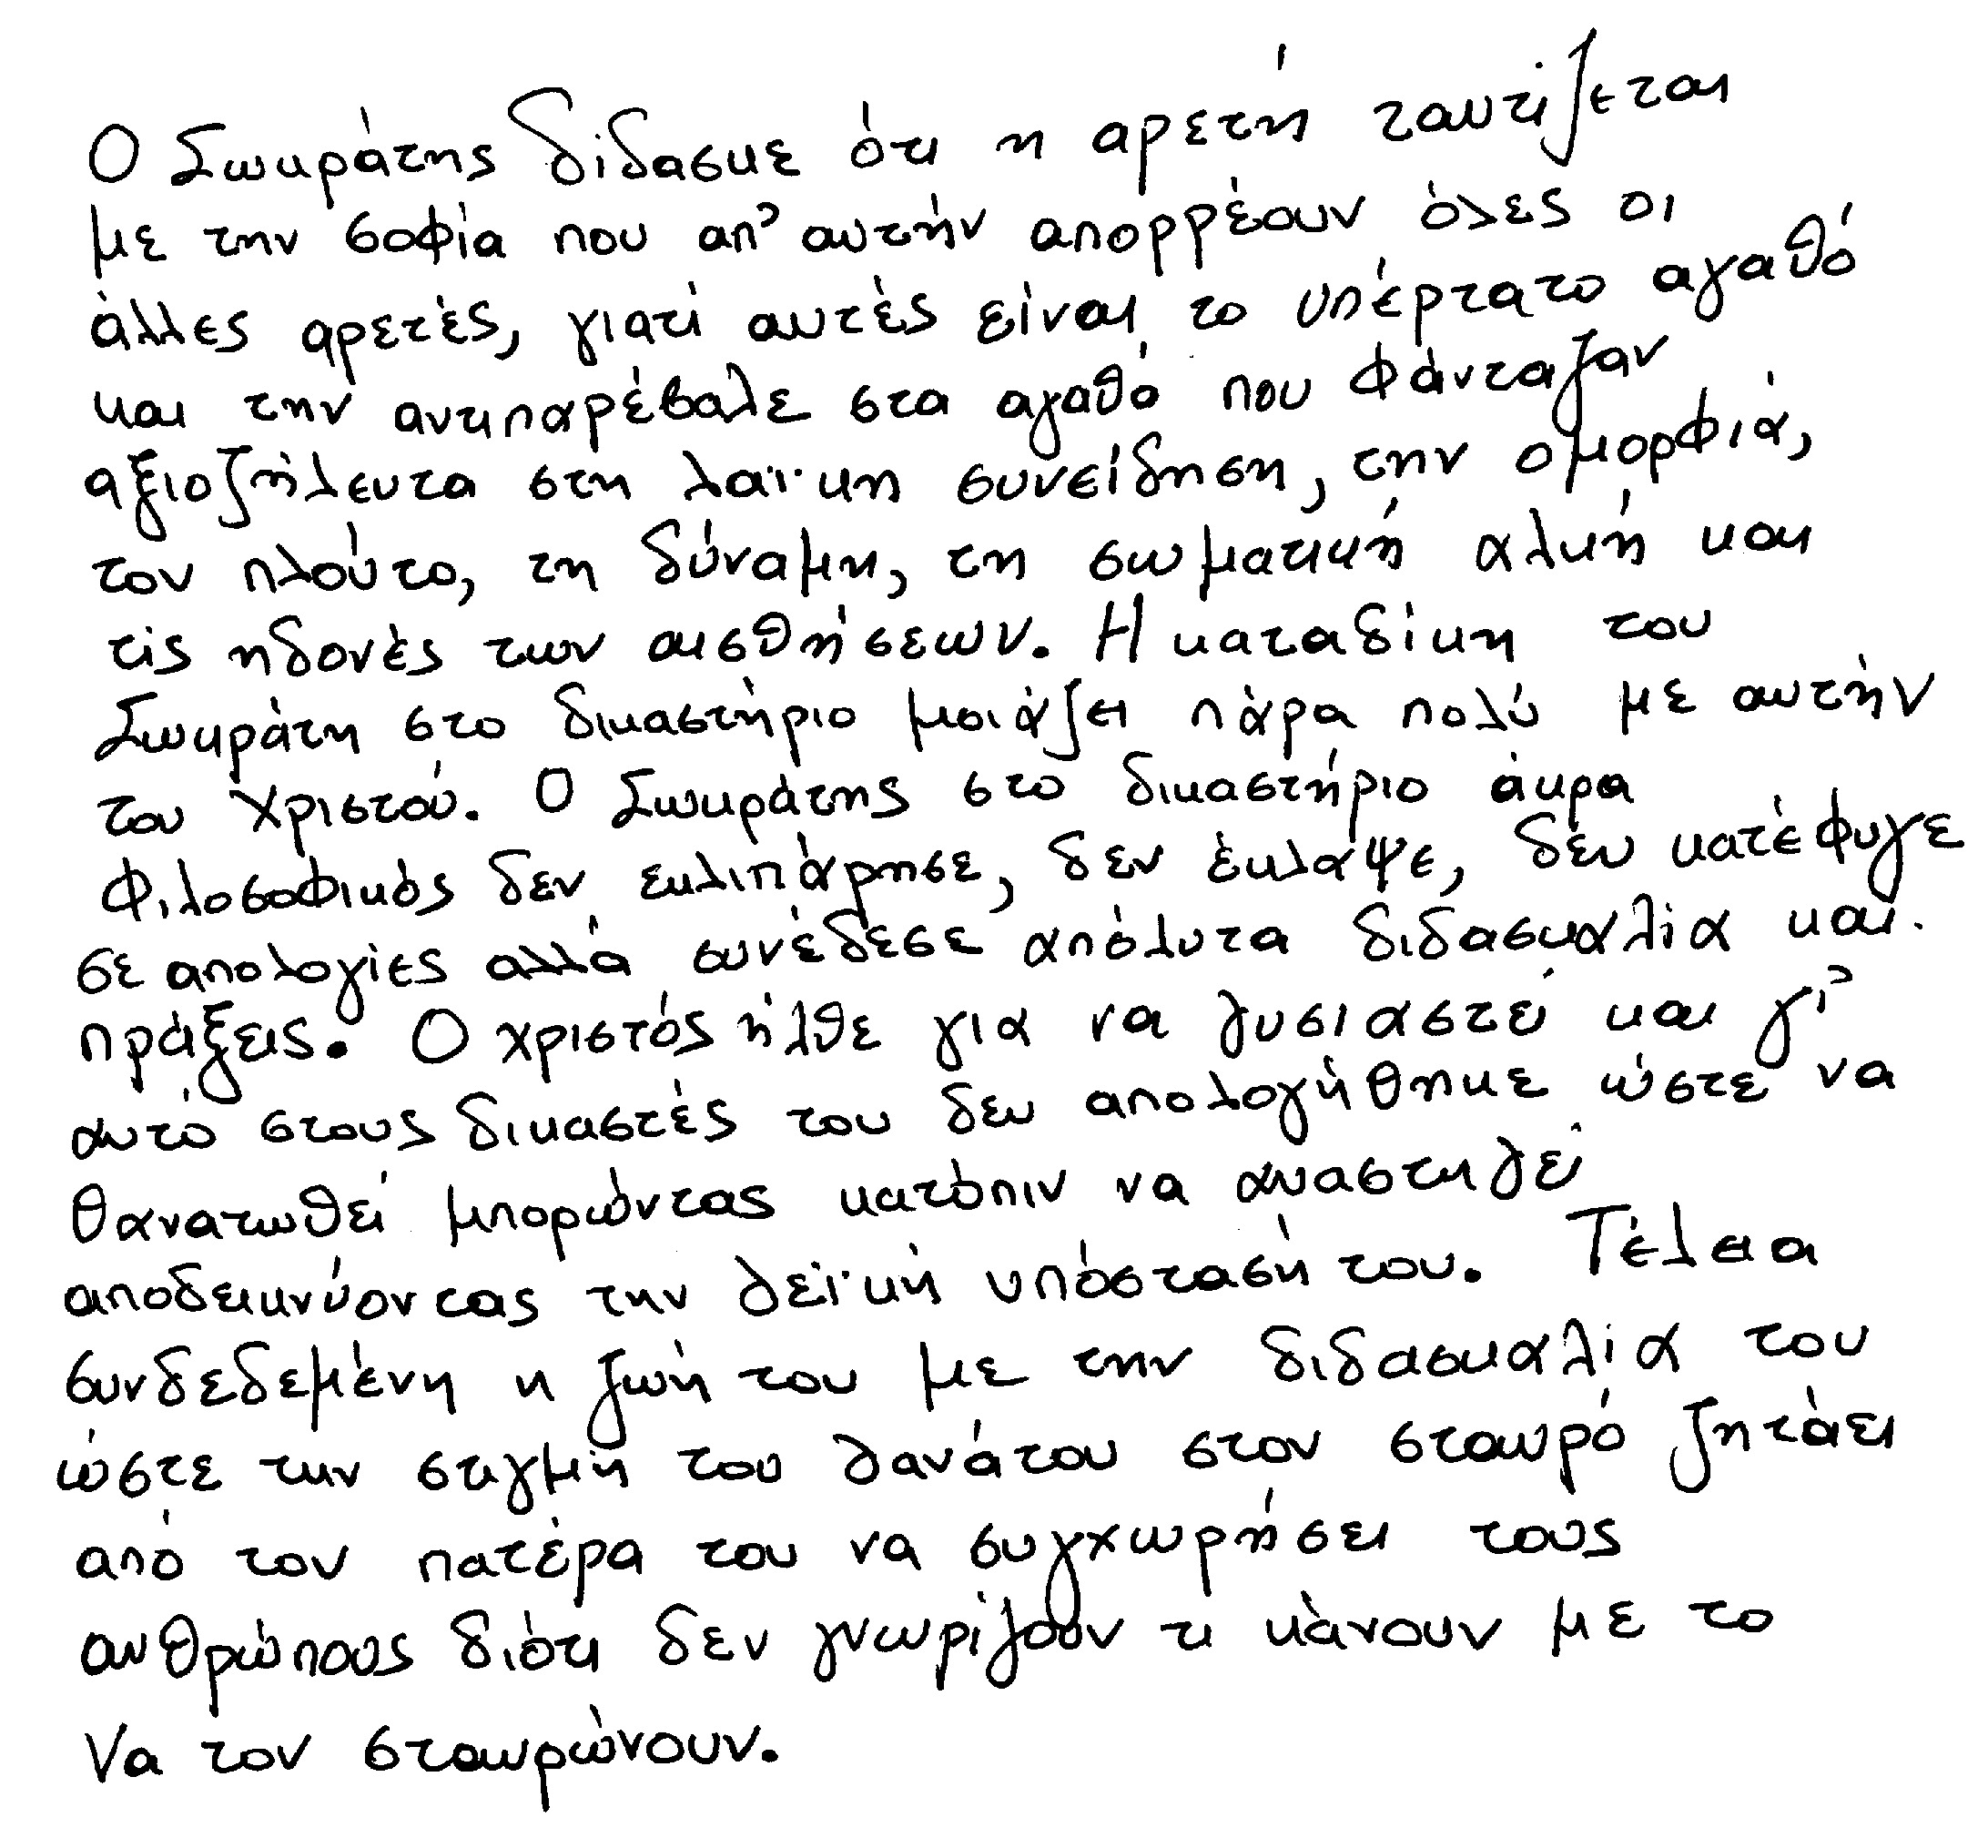 Ο Σωκράτης δίδασκε ότι η αρετή ταυτίζεται
με την σοφία που απ' αυτήν απορρέουν όλες οι
άλλες αρετές, γιατί αυτές είναι το υπέρτατο αγαθό
και την αντιπαρέβαλε στα αγαθό που φάνταζαν
αξιοζήλευτα στη λαϊκη συνείδηση, την ομορφιά,
τον πλούτο, τη δύναμη, τη σωματική αλκή και
τις ηδονές των αισθήσεων. Η καταδίκη του
Σωκράτη στο δικαστήριο μοιάζει πάρα πολύ με αυτήν
του Χριστού. Ο Σωκράτης στο δικαστήριο άκρα
φιλοσοφικός δεν εκλιπάρησε, δεν έκλαψε, δεν κατέφυγε
σε απολογίες αλλά συνέδεσε απόλυτα διδασκαλία και
πράξεις. Ο χριστός ήλθε για να θυσιαστεί και γι'
αυτό στους δικαστές του δεν απολογήθηκε ώστε να
θανατωθεί μπορώντας κατόπιν να αναστηθεί
αποδεικνύοντας την θεϊκή υπόστασή του. Τέλεια
συνδεδεμένη η ζωή του με την διδασκαλία του
ώστε την στιγμή του θανάτου στον σταυρό ζητάει
από τον πατέρα του να συγχωρήσει τους
ανθρώπους διότι δεν γνωρίζουν τι κάνουν με το
να τον σταυρώνουν.